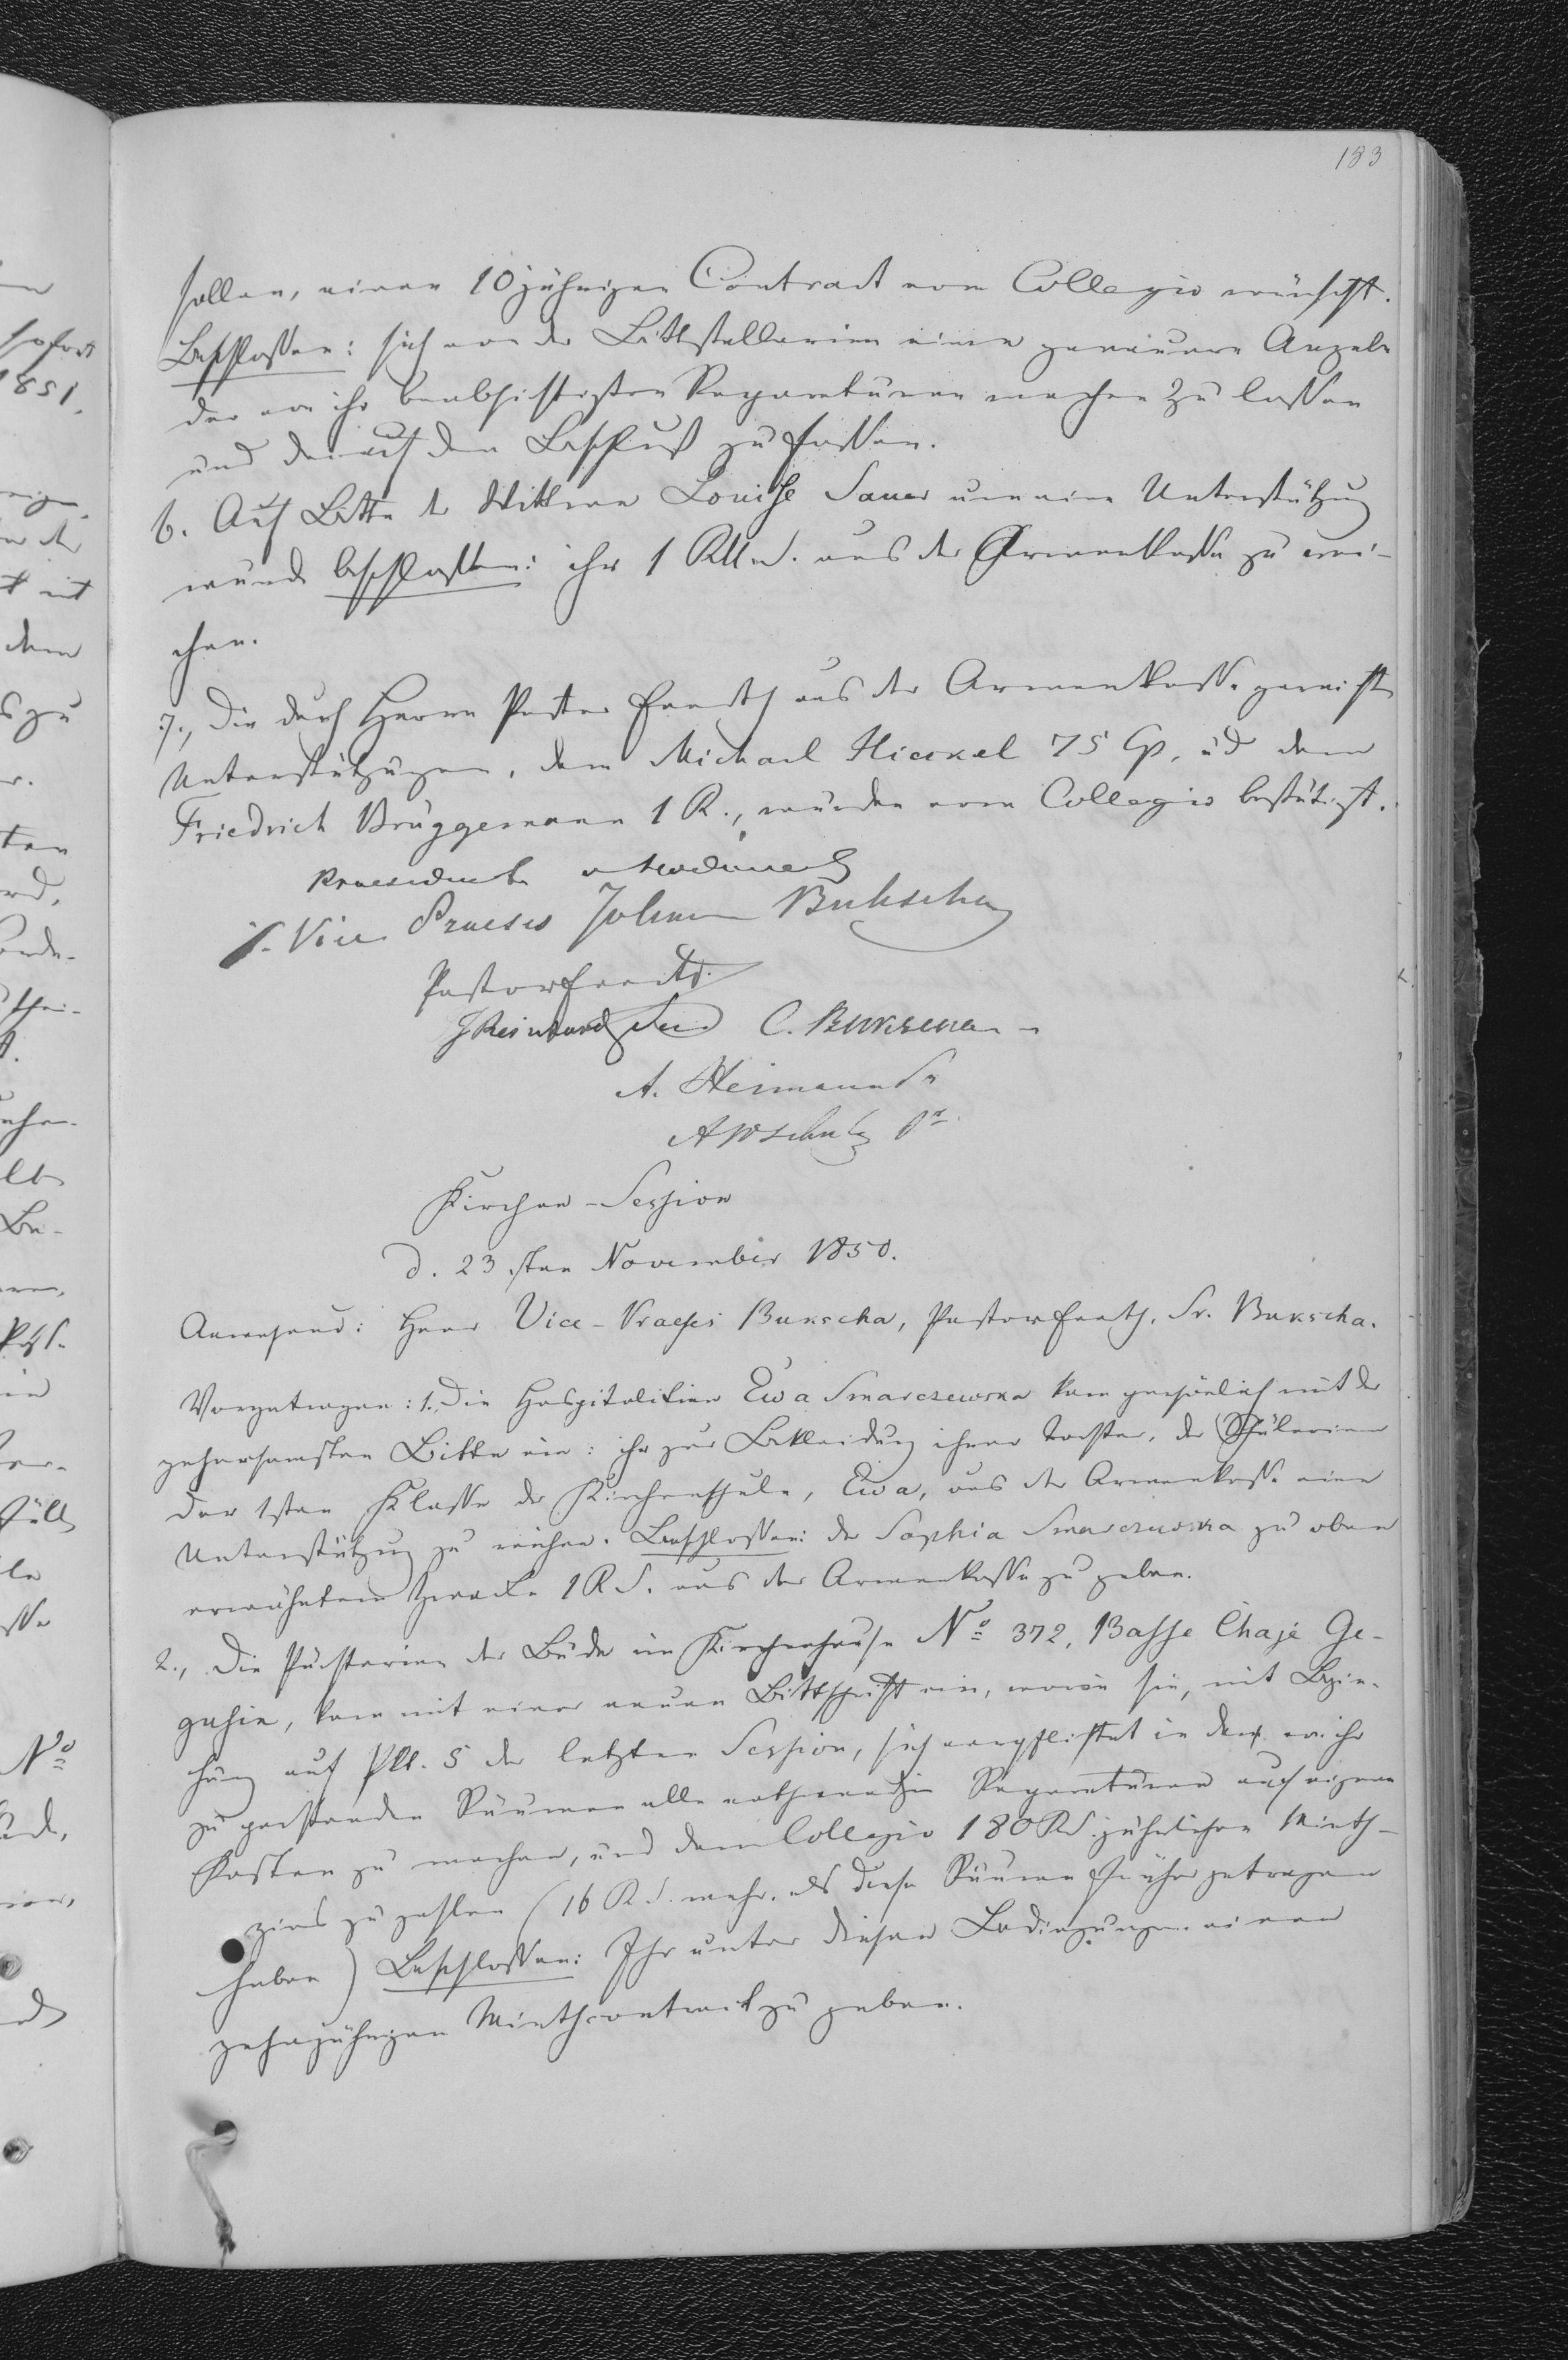 183
sollen, einen 10jährigen Contract vom Collegio wünscht.
Beschlossen: sich von der Bittstellerinn eine genauere Angabe
der von ihr beabsichtigten Reparaturen machen zu lassen
und darauf den Beschluß zu fassen.
6. Auf Bitte der Wittwe Louise Sauer um eine Unterstützung
wurde beschlossen: ihr 1 Rbl. S. aus der Armenkasse zu rei-
chen.
7., Die durch Herrn Pastor aus der Armenkasse gereichten
Unterstützungen, dem Michael Hickel 75 Cp. üd dem
Friedrich Brüggemann 1 R., wurden vom Collegio bestätigt.
Vice Praeses Johann Bukscha
Pastor
J Reinhard C. Bukscha
A. Heimann Sr
A W Schulz Sr.
Kirchen-Session
d. 23sten November 1850.
Anwesend: Herr Vice-Praeses Bukscha, Pastor Sr. Bukscha.
Vorgetragen: 1. Die Hospitalitinn Ewa Smarczewska kam persönlich mit der
gehorsamsten Bitte ein: ihr zur Bekleidung ihrer Tochter, der Schülerinn
der 1sten Klasse der Kirchenschule, Ewa, aus der Armenkasse eine
Unterstützung zu reichen. Beschlossen: der Sophia Smarczewska zu oben
erwähntem Zwecke 1 R S. aus der Armenkasse zu geben.
2., Die Pächterinn der Bude im Kirchenhause No 372, Basse Chaje Ge-
guzin, kam mit einer neuen Bittschrift ein, worin sie, mit Bezie-
hung auf Pkt. 5 der letzten Session, sich verpflichtet in den von ihr
zu pachtenden Räumen alle nothwendigen Reparaturen auf eigene
Kosten zu machen, und dem Collegio 180 R S. jährlichen Mieth-
zins zu zahlen (16 R S. mehr, als diese Räume früher getragen
haben) Beschlossen: Ihr unter diesen Bedingungen einen
zehnjährigen Miethcontract zu geben.